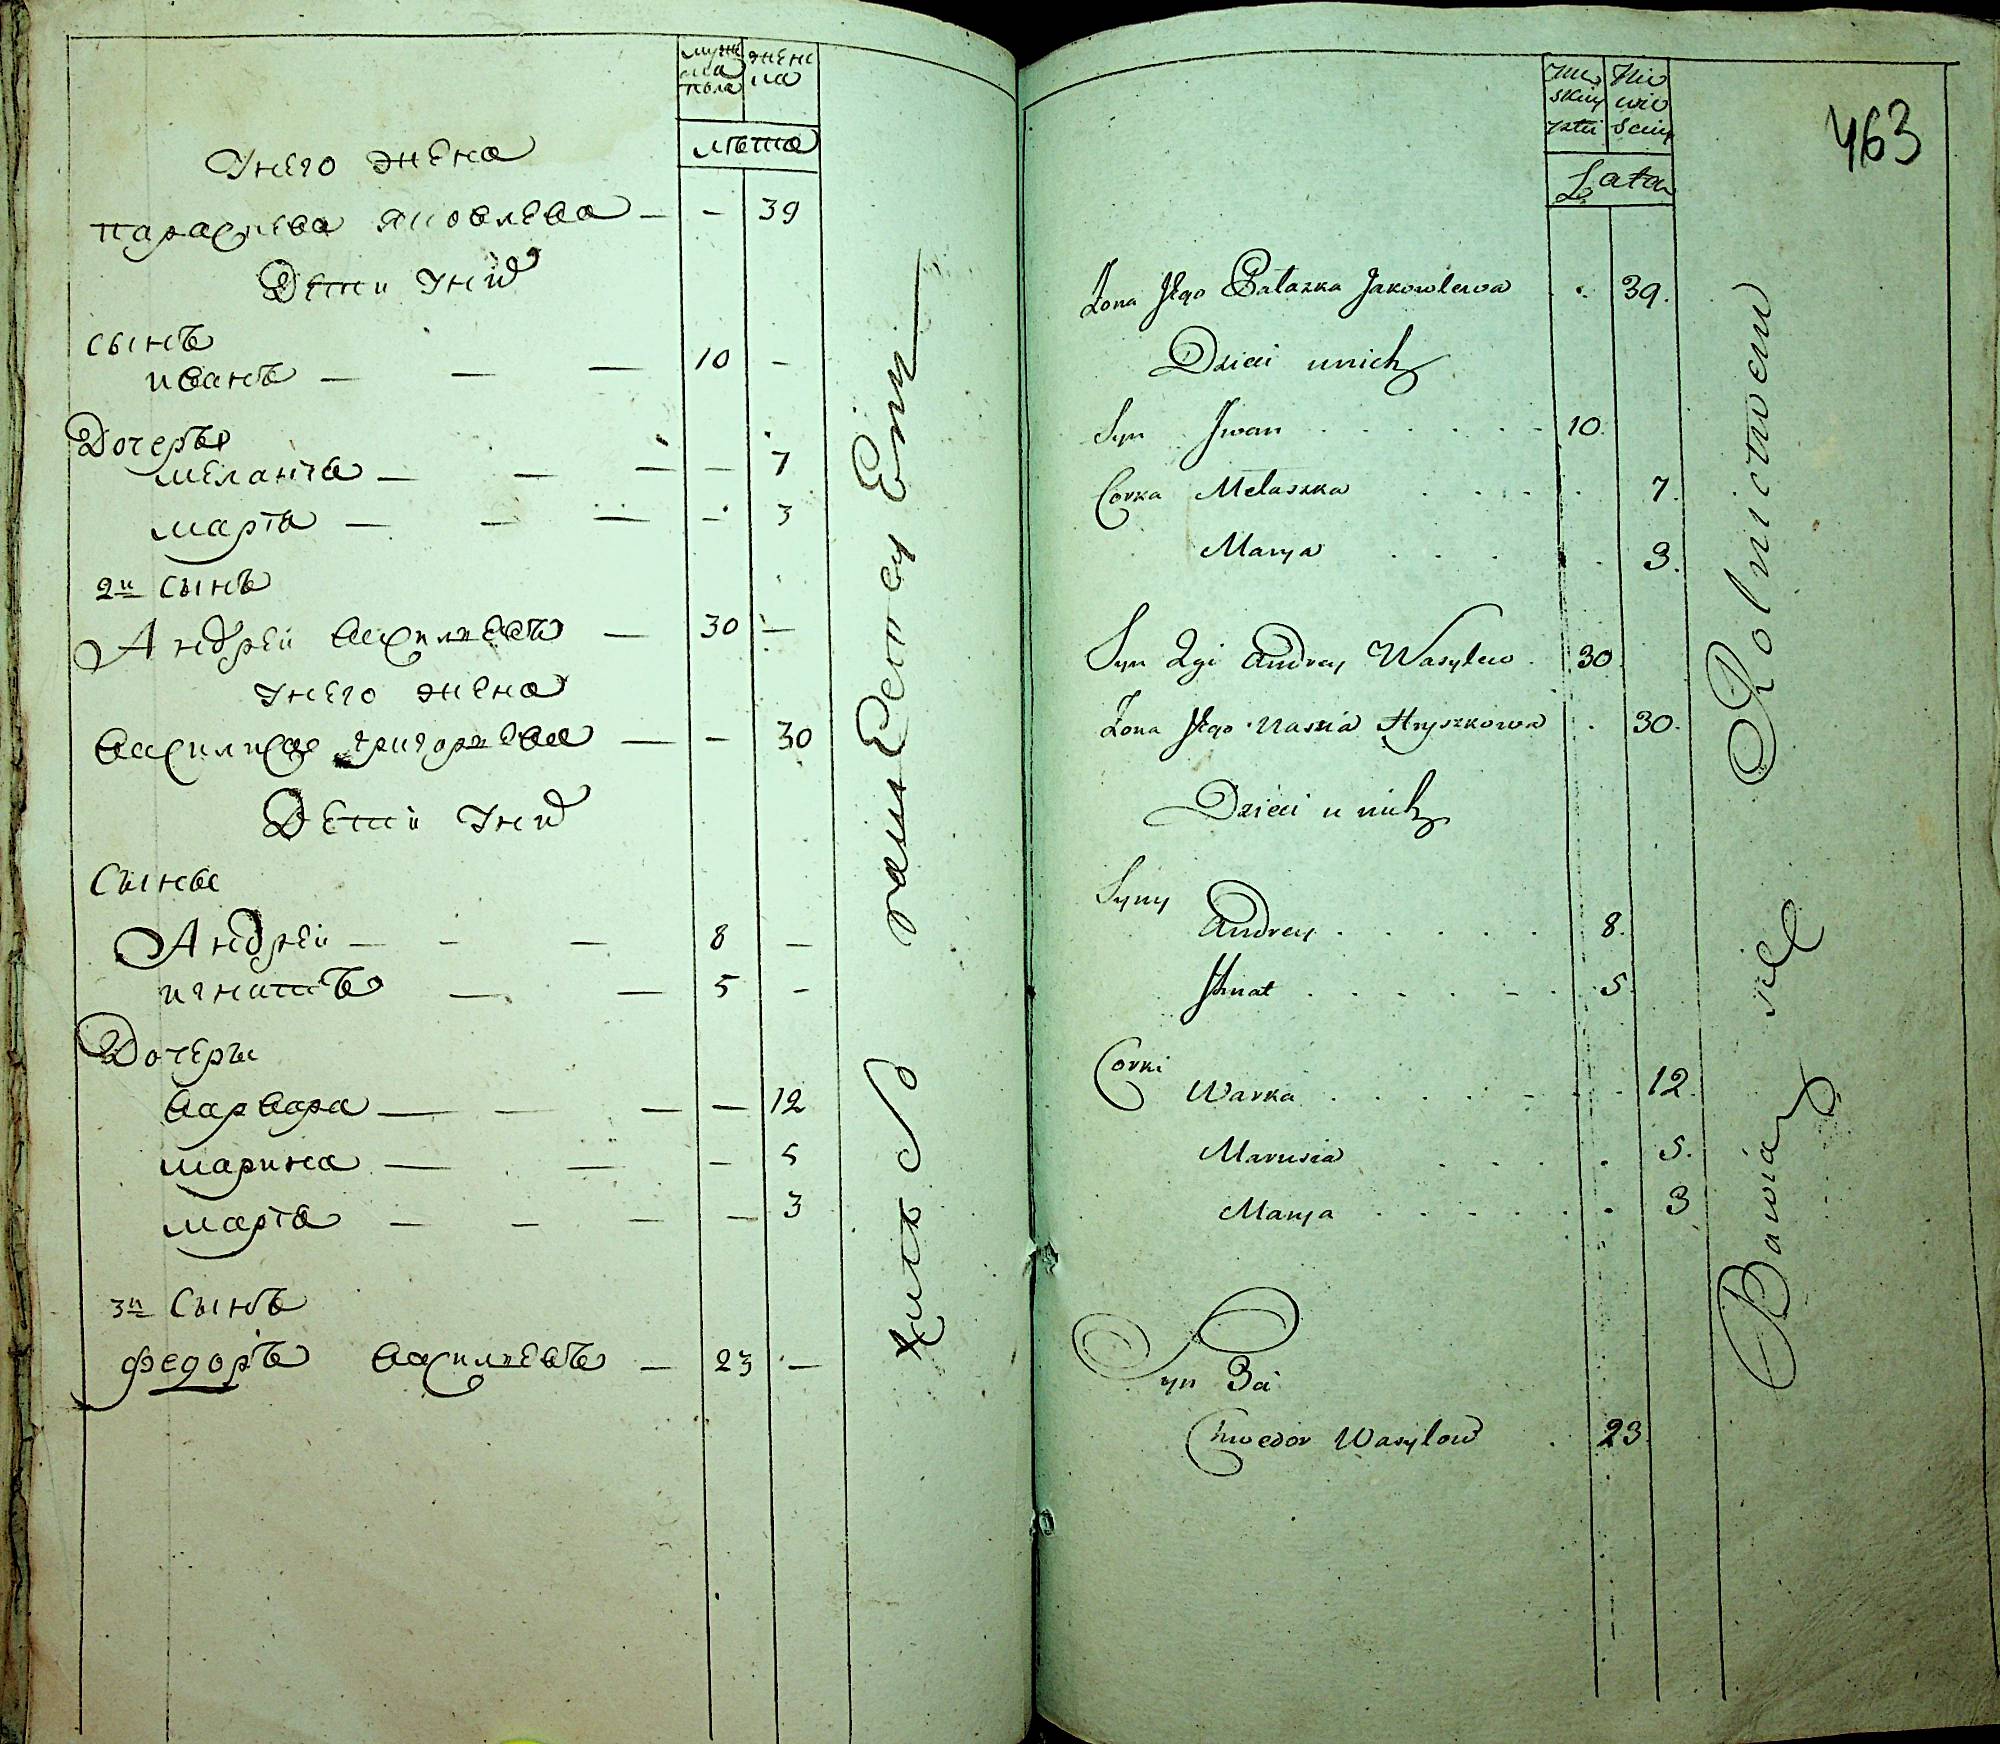 муж
ска
пола
женс
ка
лѣта
Унего жена
параскева яковлева — — 39
Дети Уних
сынъ
иванъ — — — 10 —
Дочеры
меланія — — — — 7
марія — — — — 3
2й сынъ
Андрей василиевъ — 30 —
Унего жена
василиса григориева — — 30
Дети Уних
Сыны
Андрей — — — 8 —
игнатъ — — 5 —
Дочеры
варвара — — — — 12
марина — — — 5
марія — — — — 3
3й Сынъ
федоръ василиевъ — 23 —
Męskiey
płci
Nie
wie
sciey
Lata
463
Żona Jego Pałazka Jakowlewa . . 39.
Dzieci unich
Syn Jwan . . . . . . 10.
Corka Melaszka . . . . . 7.
Marya . . . . 3.
Syn 2gi Andrey Wasylew . 30.
Żona Jego Nascia Hryszkowa . 30.
Dzieci u nich
Syny
Andrey . . . . . 8.
Jhnat . . . . . . 5.
Corki
Warka . . . . . . . 12.
Marusia . . . . 5.
Marya . . . . . . 3
Syn 3ci
Chwedor Wasylow . 23
Bawią się Rolnictwem